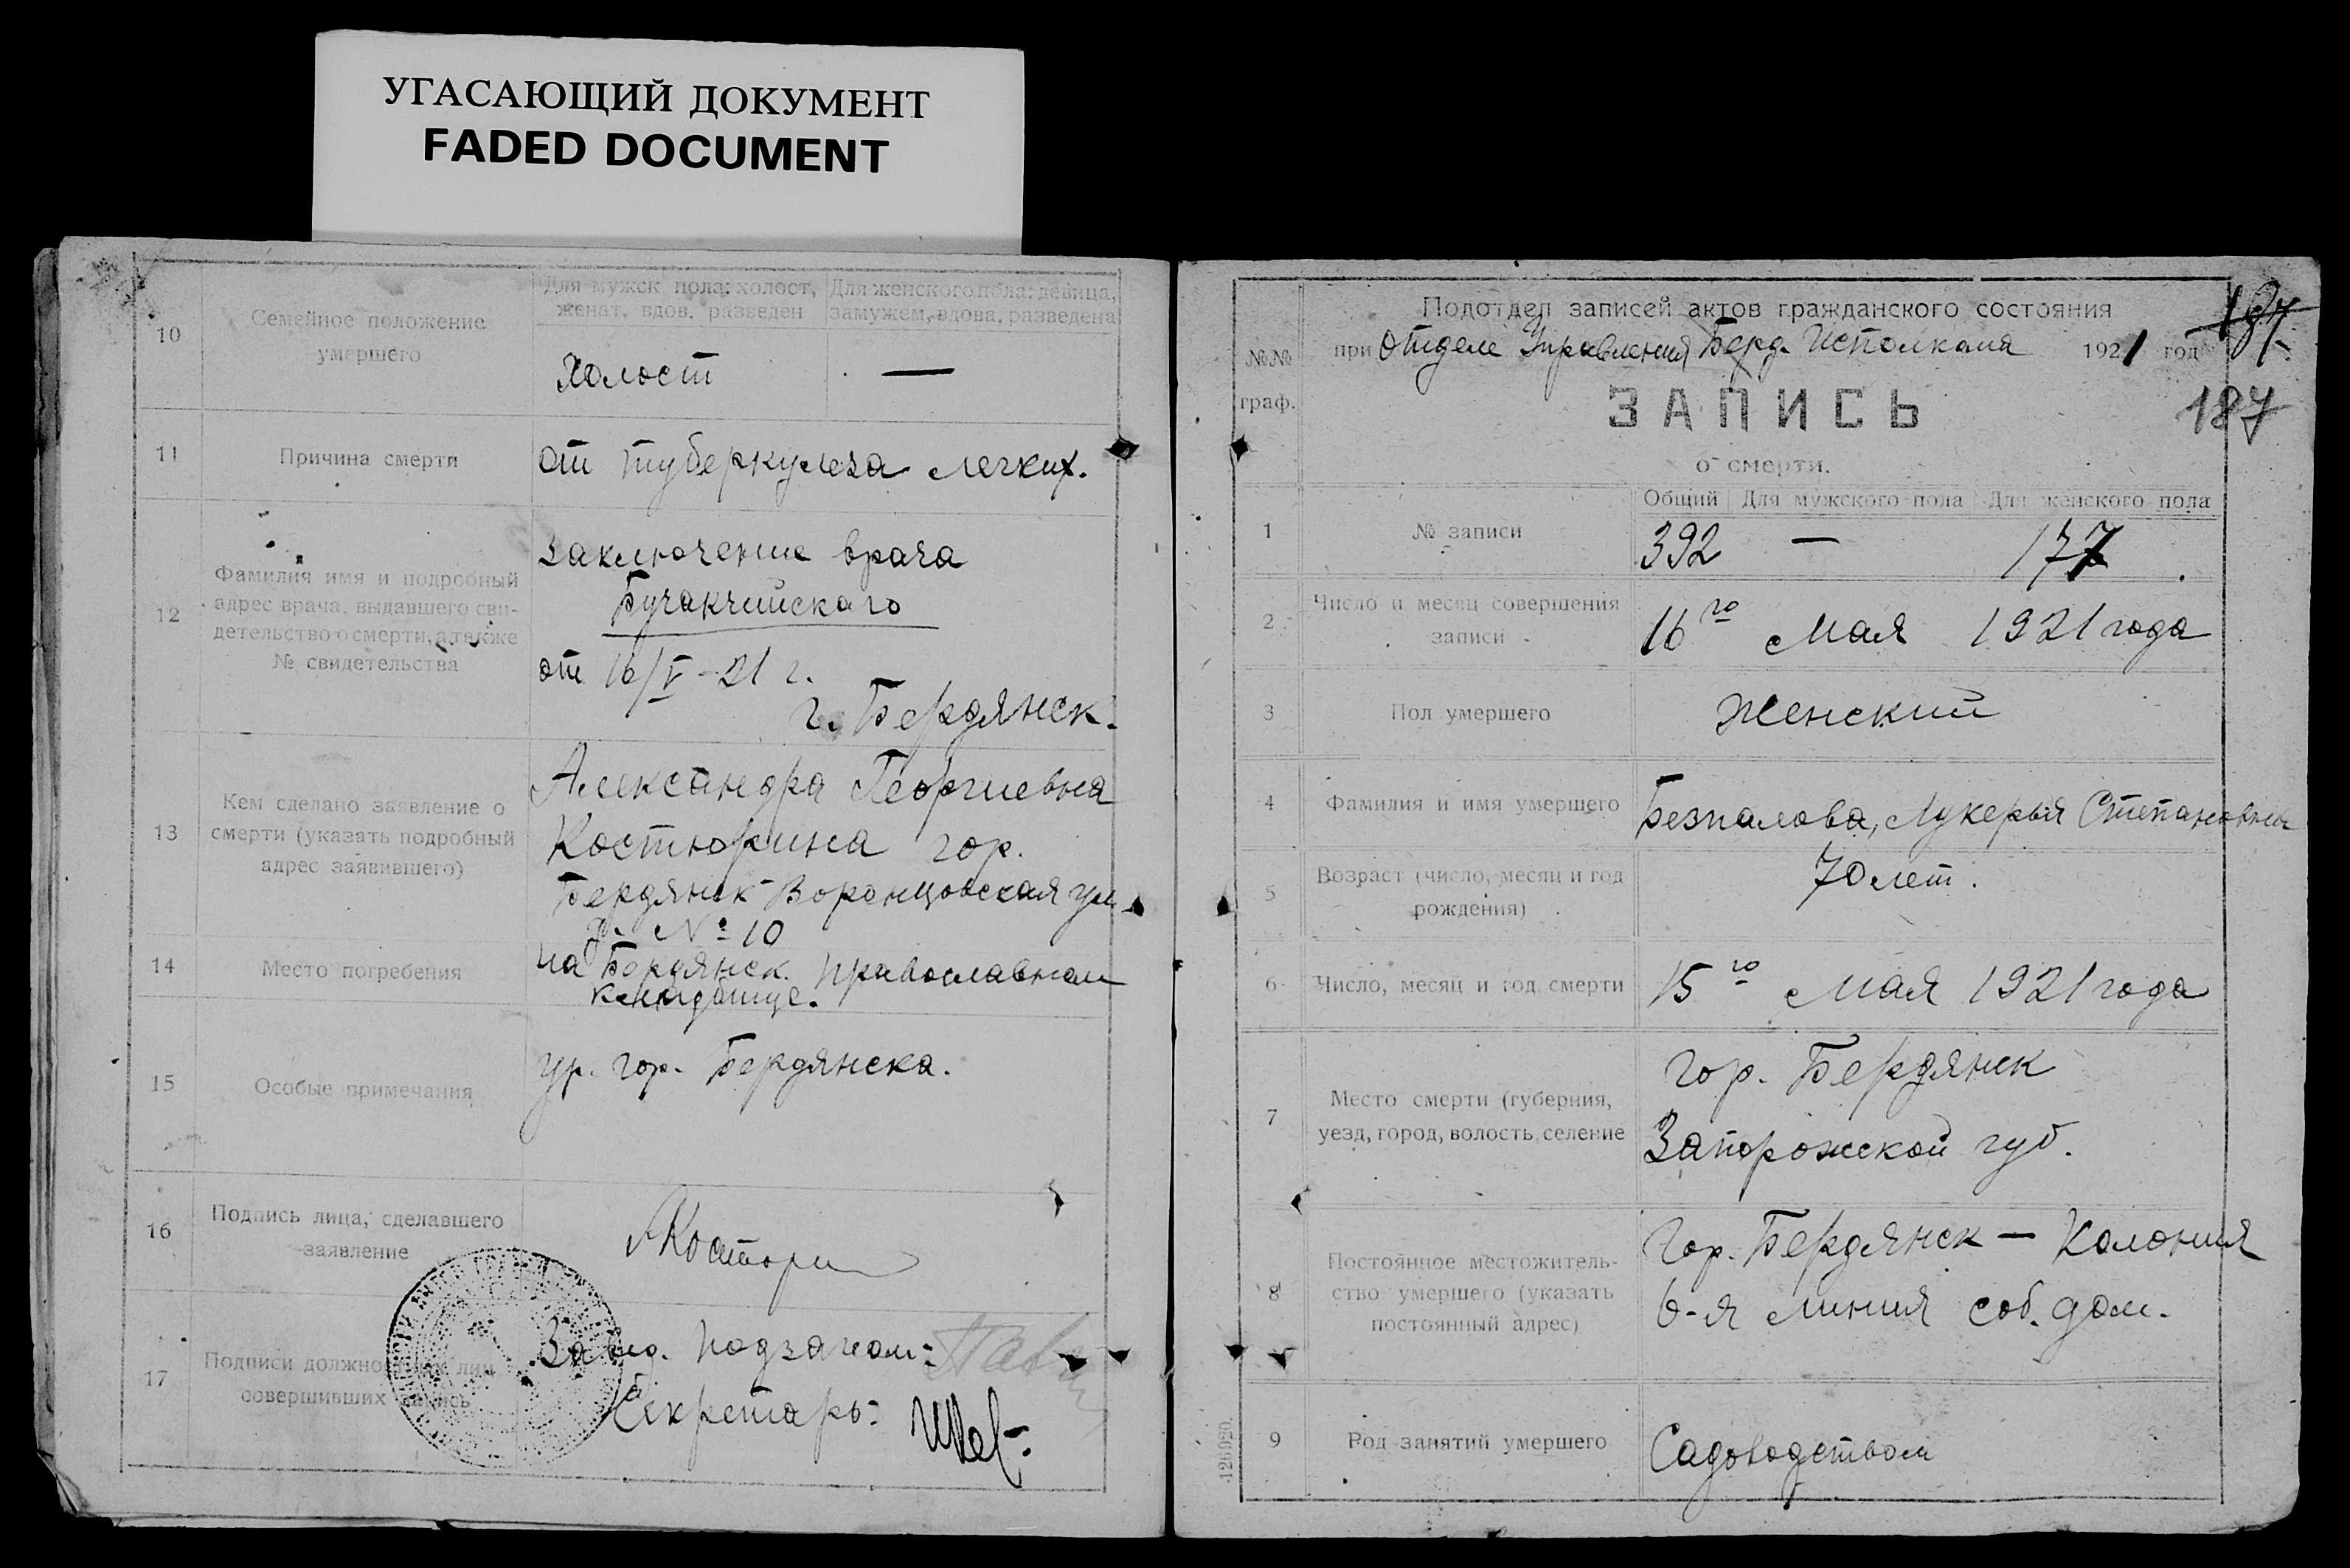 УГАСАЮЩИЙ ДОКУМЕНТ
FADED DOCUMENT
10
Семейное положение
умершего
Для мужск. пола: холост,
женат, вдов. разведен
Для женского пола: девица,
замужем, вдова, разведена
Холост
—
11
Причина смерти
от туберкулеза легких.
12
Фамилия имя и подробный
адрес врача, выдавшего сви-
детельство о смерти, а также
№ свидетельства
Заключение врача
Бучакчийского
от 16/V-21 г.
г. Бердянск.
13
Кем сделано заявление о
смерти (указать подробный
адрес заявившего)
Александра Георгиевна
Костюрина гор.
Бердянск Воронцовская ул.
д. № 10
14
Место погребения
на Бердянск. православном
кладбище.
15
Особые примечания
ур. гор. Бердянска.
16
Подпись лица, сделавшего
заявление
17
Подписи должностных лиц
совершивших запись
Секретарь:
№№
граф.
Подотдел записей актов гражданского состояния
при Отделе Управления Берд. Исполкома 1921 год
187
187
ЗАПИСЬ
о смерти.
1
№ записи
Общий Для мужского пола Для женского пола
392 — 177
2
Число и месяц совершения
записи
16го Мая 1921 года
3
Пол умершего
Женский
4
Фамилия и имя умершего
Безпалова, Лукерья Степановна
5
Возраст (число, месяц и год
рождения)
70 лет.
6
Число, месяц и год смерти
15го Мая 1921 года
7
Место смерти (губерния,
уезд, город, волость, селение
гор. Бердянск
Запорожской губ.
8
Постоянное местожитель-
ство умершего (указать
постоянный адрес)
Гор. Бердянск — Колония
6-я линия соб. дом.
9
Род занятий умершего
Садоводством
126920.